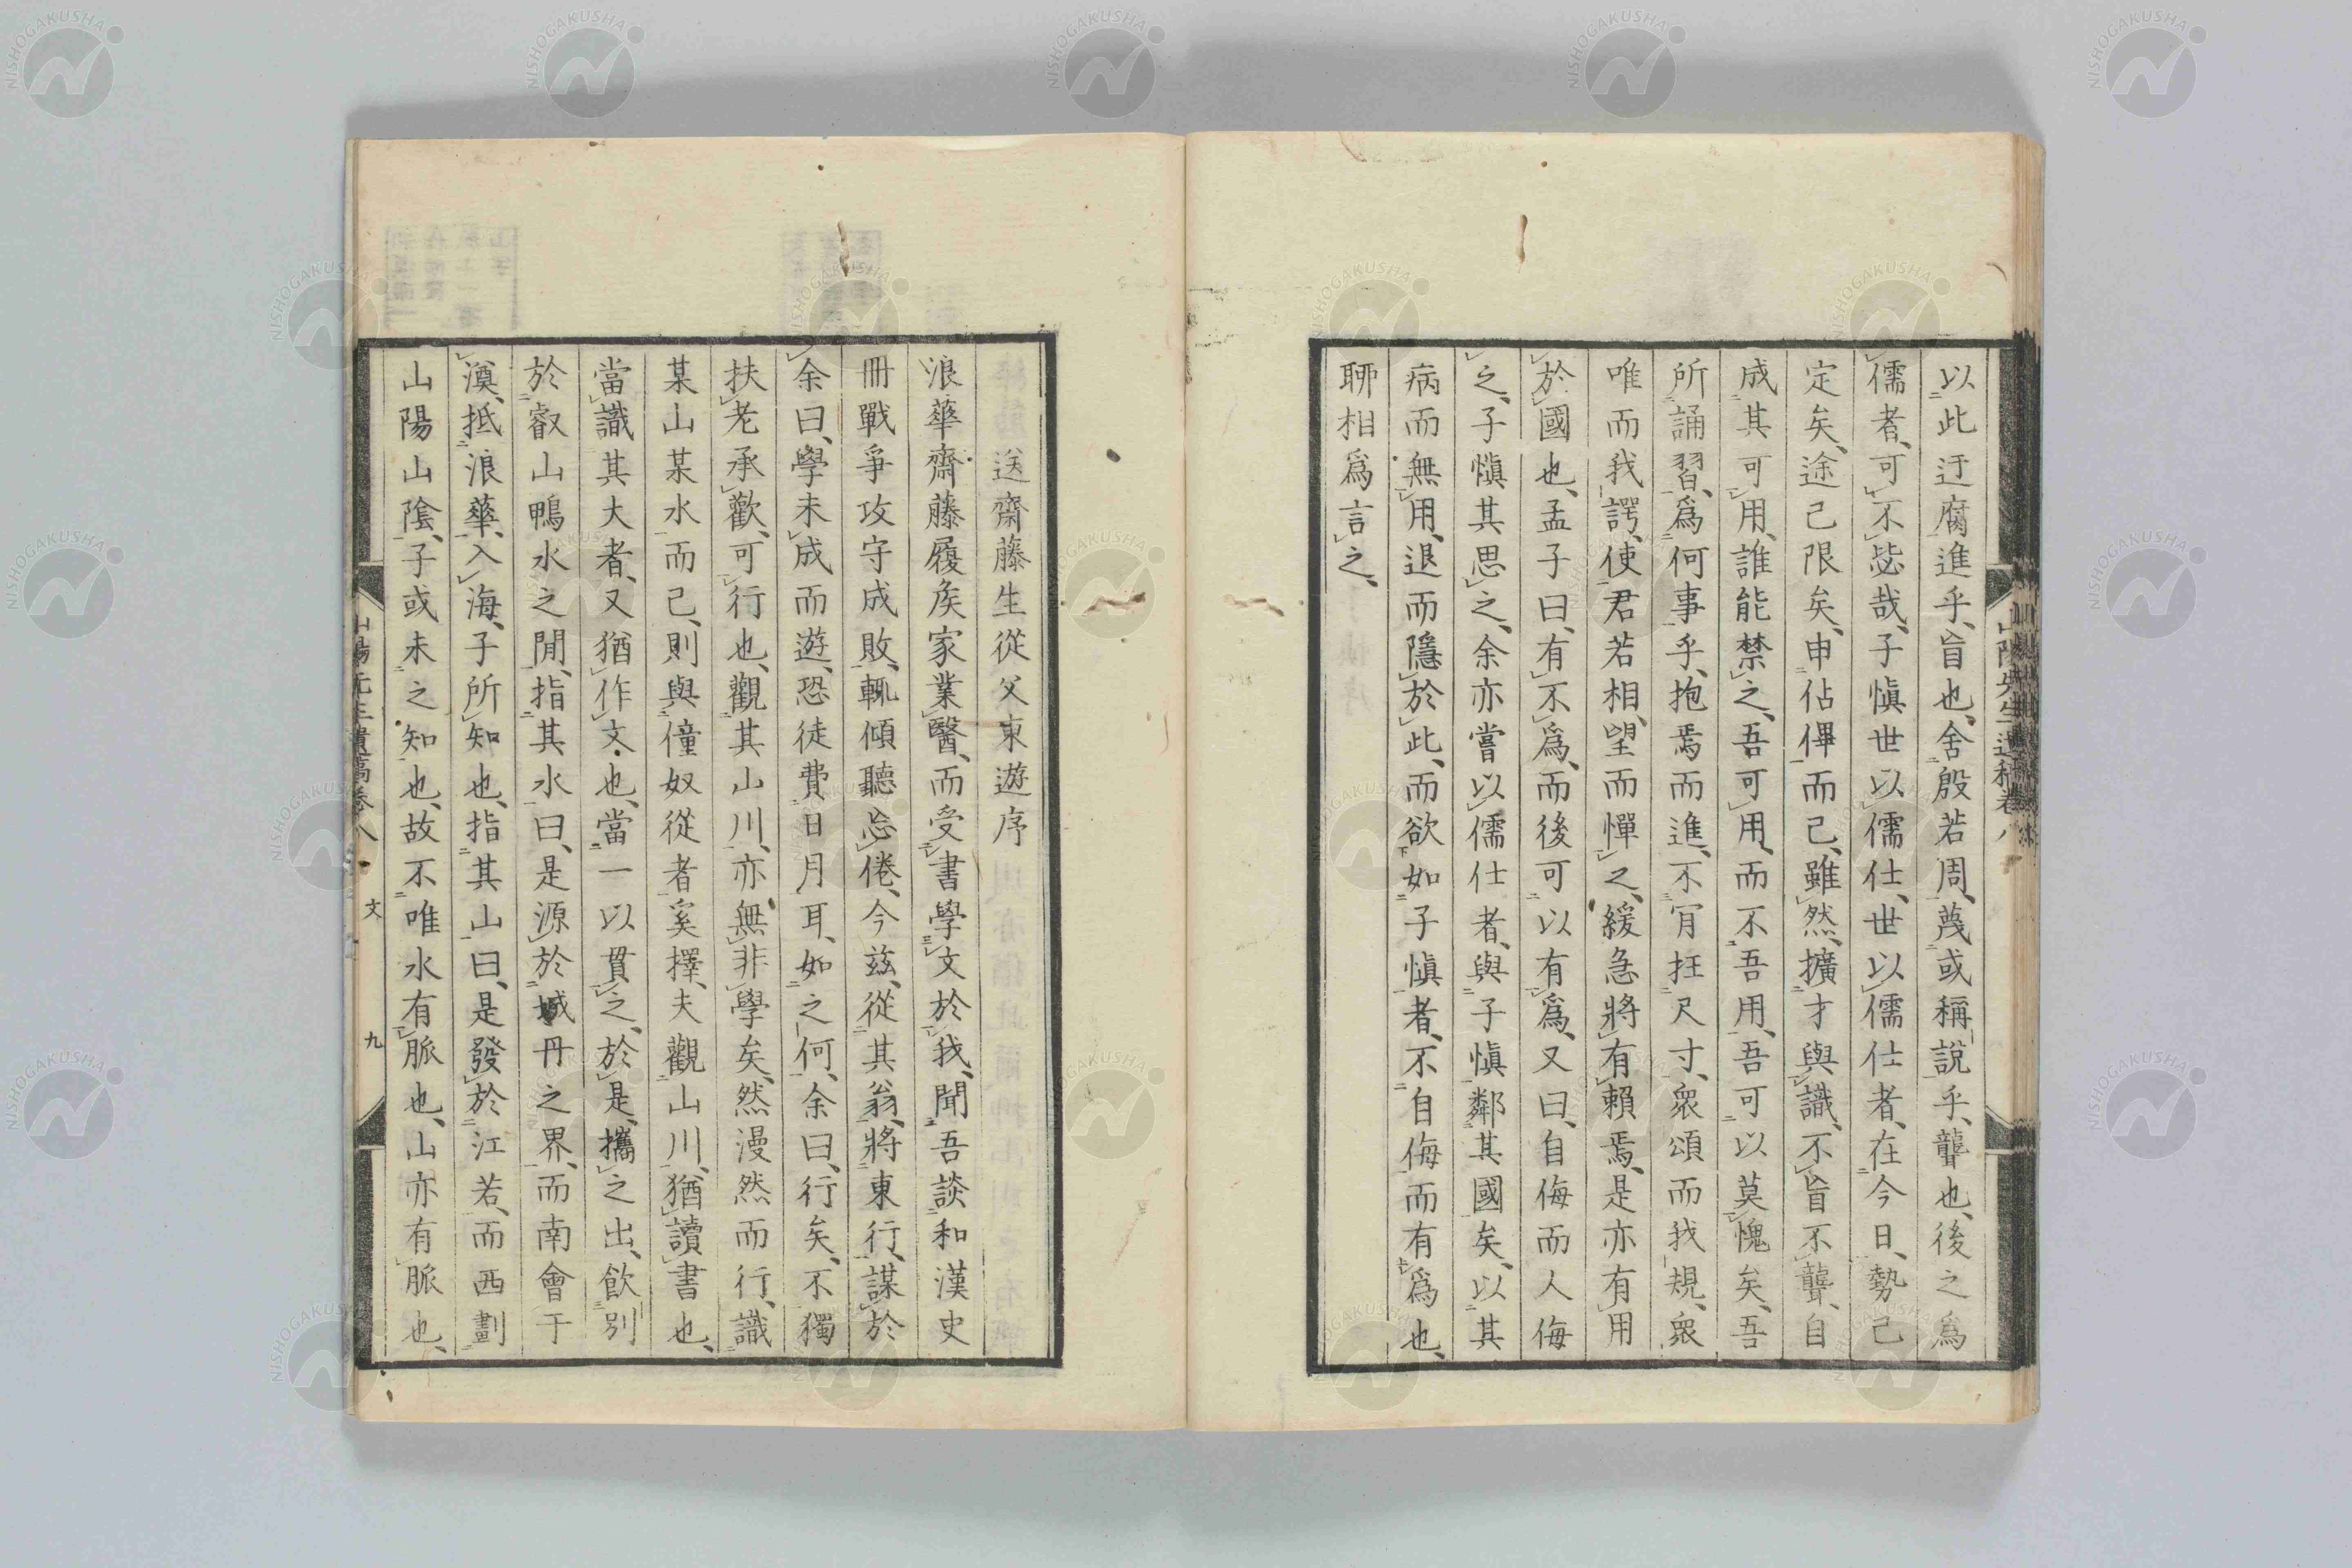 以此迂腐進乎、盲也、舍殷若周、蔑或稱說乎、聾也、後之爲
儒者、可不毖哉、子愼世以儒仕、世以儒仕者、在今日、勢已
定矣、途已限矣、申佔俾而已、雖然、擴才與識、不盲不聾、自
成其可用、誰能禁之、吾可用、而不吾用、吾可以莫愧矣、吾
所誦習、爲何事乎、抱焉而進、不肎枉尺寸、衆頌而我規、衆
唯而我諤、使君若相、望而憚之、緩急將有賴焉、是亦有用
於國也、孟子曰、有不爲、而後可以有爲、又曰、自侮而人侮
之、子愼其思之、余亦嘗以儒仕者、與子愼鄰其國矣、以其
病而無用、退而隱於此、而欲如子愼者、不自侮而有爲也、
聊相爲言之、
送齋藤生從父東遊序
浪華齋藤履矦家業醫、而受書學文於我、聞吾談和漢史
冊戰爭攻守成敗、輒傾聽忘倦、今茲、從其翁、將東行、謀於
余曰、學未成而遊、恐徒費日月耳、如之何、余曰、行矣、不獨
扶老承歡、可行也、觀其山川、亦無非學矣、然漫然而行、識
某山某水而已、則與僮奴從者奚擇、夫觀山川、猶讀書也、
當識其大者、又猶作文也、當一以貫之、於是、攜之出、飮別
於叡山鴨水之閒、指其水曰、是源於城丹之界、而南會于
澳、抵浪華、入海、子所知也、指其山曰、是發於江若、而西劃
山陽山陰、子或未之知也、故不唯水有脈也、山亦有脈也、
山陽先生遺稿卷八
文
九